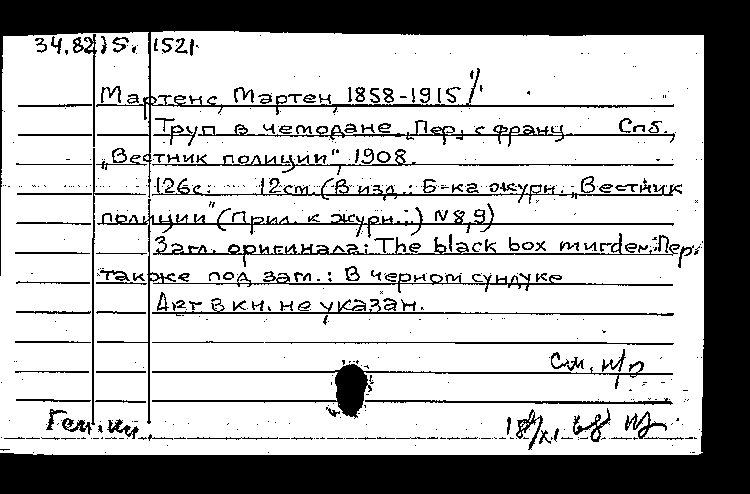 34.82)5. 1521.
Мартенс, Мартен, 1858-1915
Труп в чемодане. Пер. с франц. Спб.,
„Вестник полиции", 1908.
126с. 12см. (В изд.: Б-ка журн. „Вестник
полиции" (Прил. к журн.:.) N 8,9)
Загл. оригинала: The black box murder. Пер.
также под загл.: В черном сундуке
Авт. в кн. не указан.
См. н/о
Ген. кн.
18/XI 68